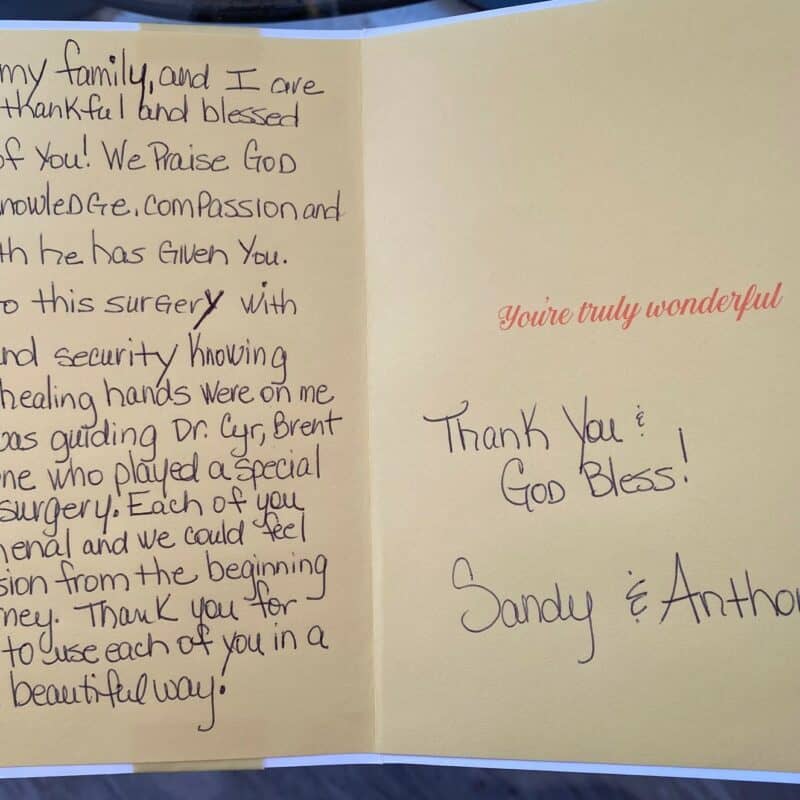 my family, and I are
thankful and blessed
of You! We Praise GOD
nowleDGe, comPassion and
th he has Given You.
o this surGery with
nd security Knowing
healing hands were on me
as guiding Dr. Cyr, Brent
ne who played a special
surgery. Each of you
enal and we could feel
sion from the beginning
ney. Thank you for
to use each of you in a
beautiful way!
You're truly wonderful
Thank You &
GOD Bless!
Sandy & Antho